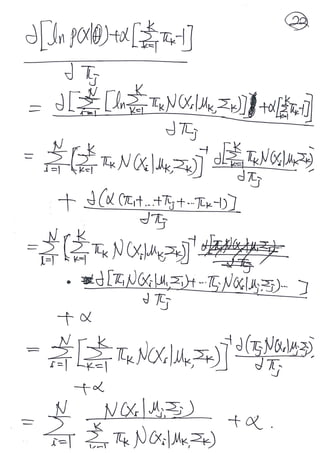 22
d[ln p(X|θ) + α[∑_{k=1}^{K} π_k - 1]]
d π_j
= d[∑_{i=1}^{N} [ln ∑_{k=1}^{K} π_k N(x_i|μ_k, Σ_k)] + α[∑_{k=1}^{K} π_k - 1]]
d π_j
= ∑_{i=1}^{N} [∑_{k=1}^{K} π_k N(x_i|μ_k, Σ_k)]^{-1} d[∑_{k=1}^{K} π_k N(x_i|μ_k, Σ_k)]
d π_j
+ d(α(π_1 + ... + π_j + ... π_k - 1)]
d π_j
= ∑_{i=1}^{N} [∑_{k=1}^{K} π_k N(x_i|μ_k, Σ_k)]^{-1}
· d[π_1 N(x_i|μ_1, Σ_1) + ... π_j N(x_i|μ_j, Σ_j) ... ]
d π_j
+ α
= ∑_{i=1}^{N} [∑_{k=1}^{K} π_k N(x_i|μ_k, Σ_k)]^{-1} d(π_j N(x_i|μ_j, Σ_j))
d π_j
+ α
= ∑_{i=1}^{N} N(x_i|μ_j, Σ_j) + α.
∑_{k=1}^{K} π_k N(x_i|μ_k, Σ_k)